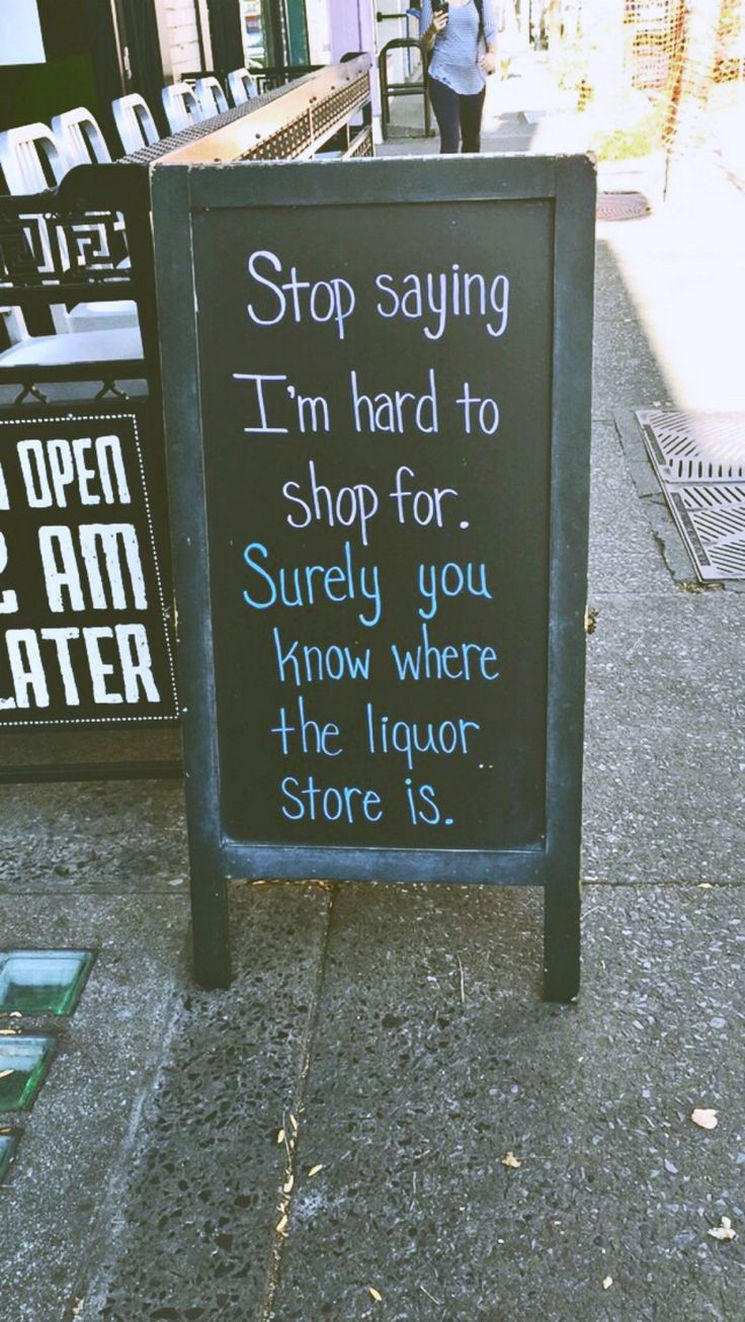 Stop saying
I'm hard to
shop for.
Surely you
know where
the liquor
store is.
OPEN
AM